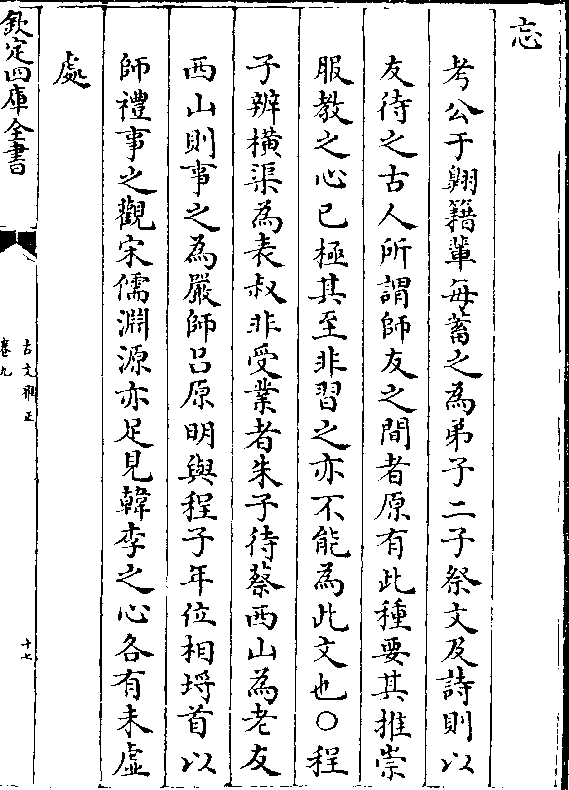 忘
考公于翺籍輩每蓄之為弟子二子祭文及詩則以
友待之古人所謂師友之間者原有此種要其推崇
服教之心已極其至非習之亦不能為此文也○程
子辨橫渠為表叔非受業者朱子待蔡西山為老友
西山則事之為嚴師呂原明與程子年位相埒首以
師禮事之觀宋儒淵源亦足見韓李之心各有未虛
處
欽定四庫全書
古文雅正
卷九
十七